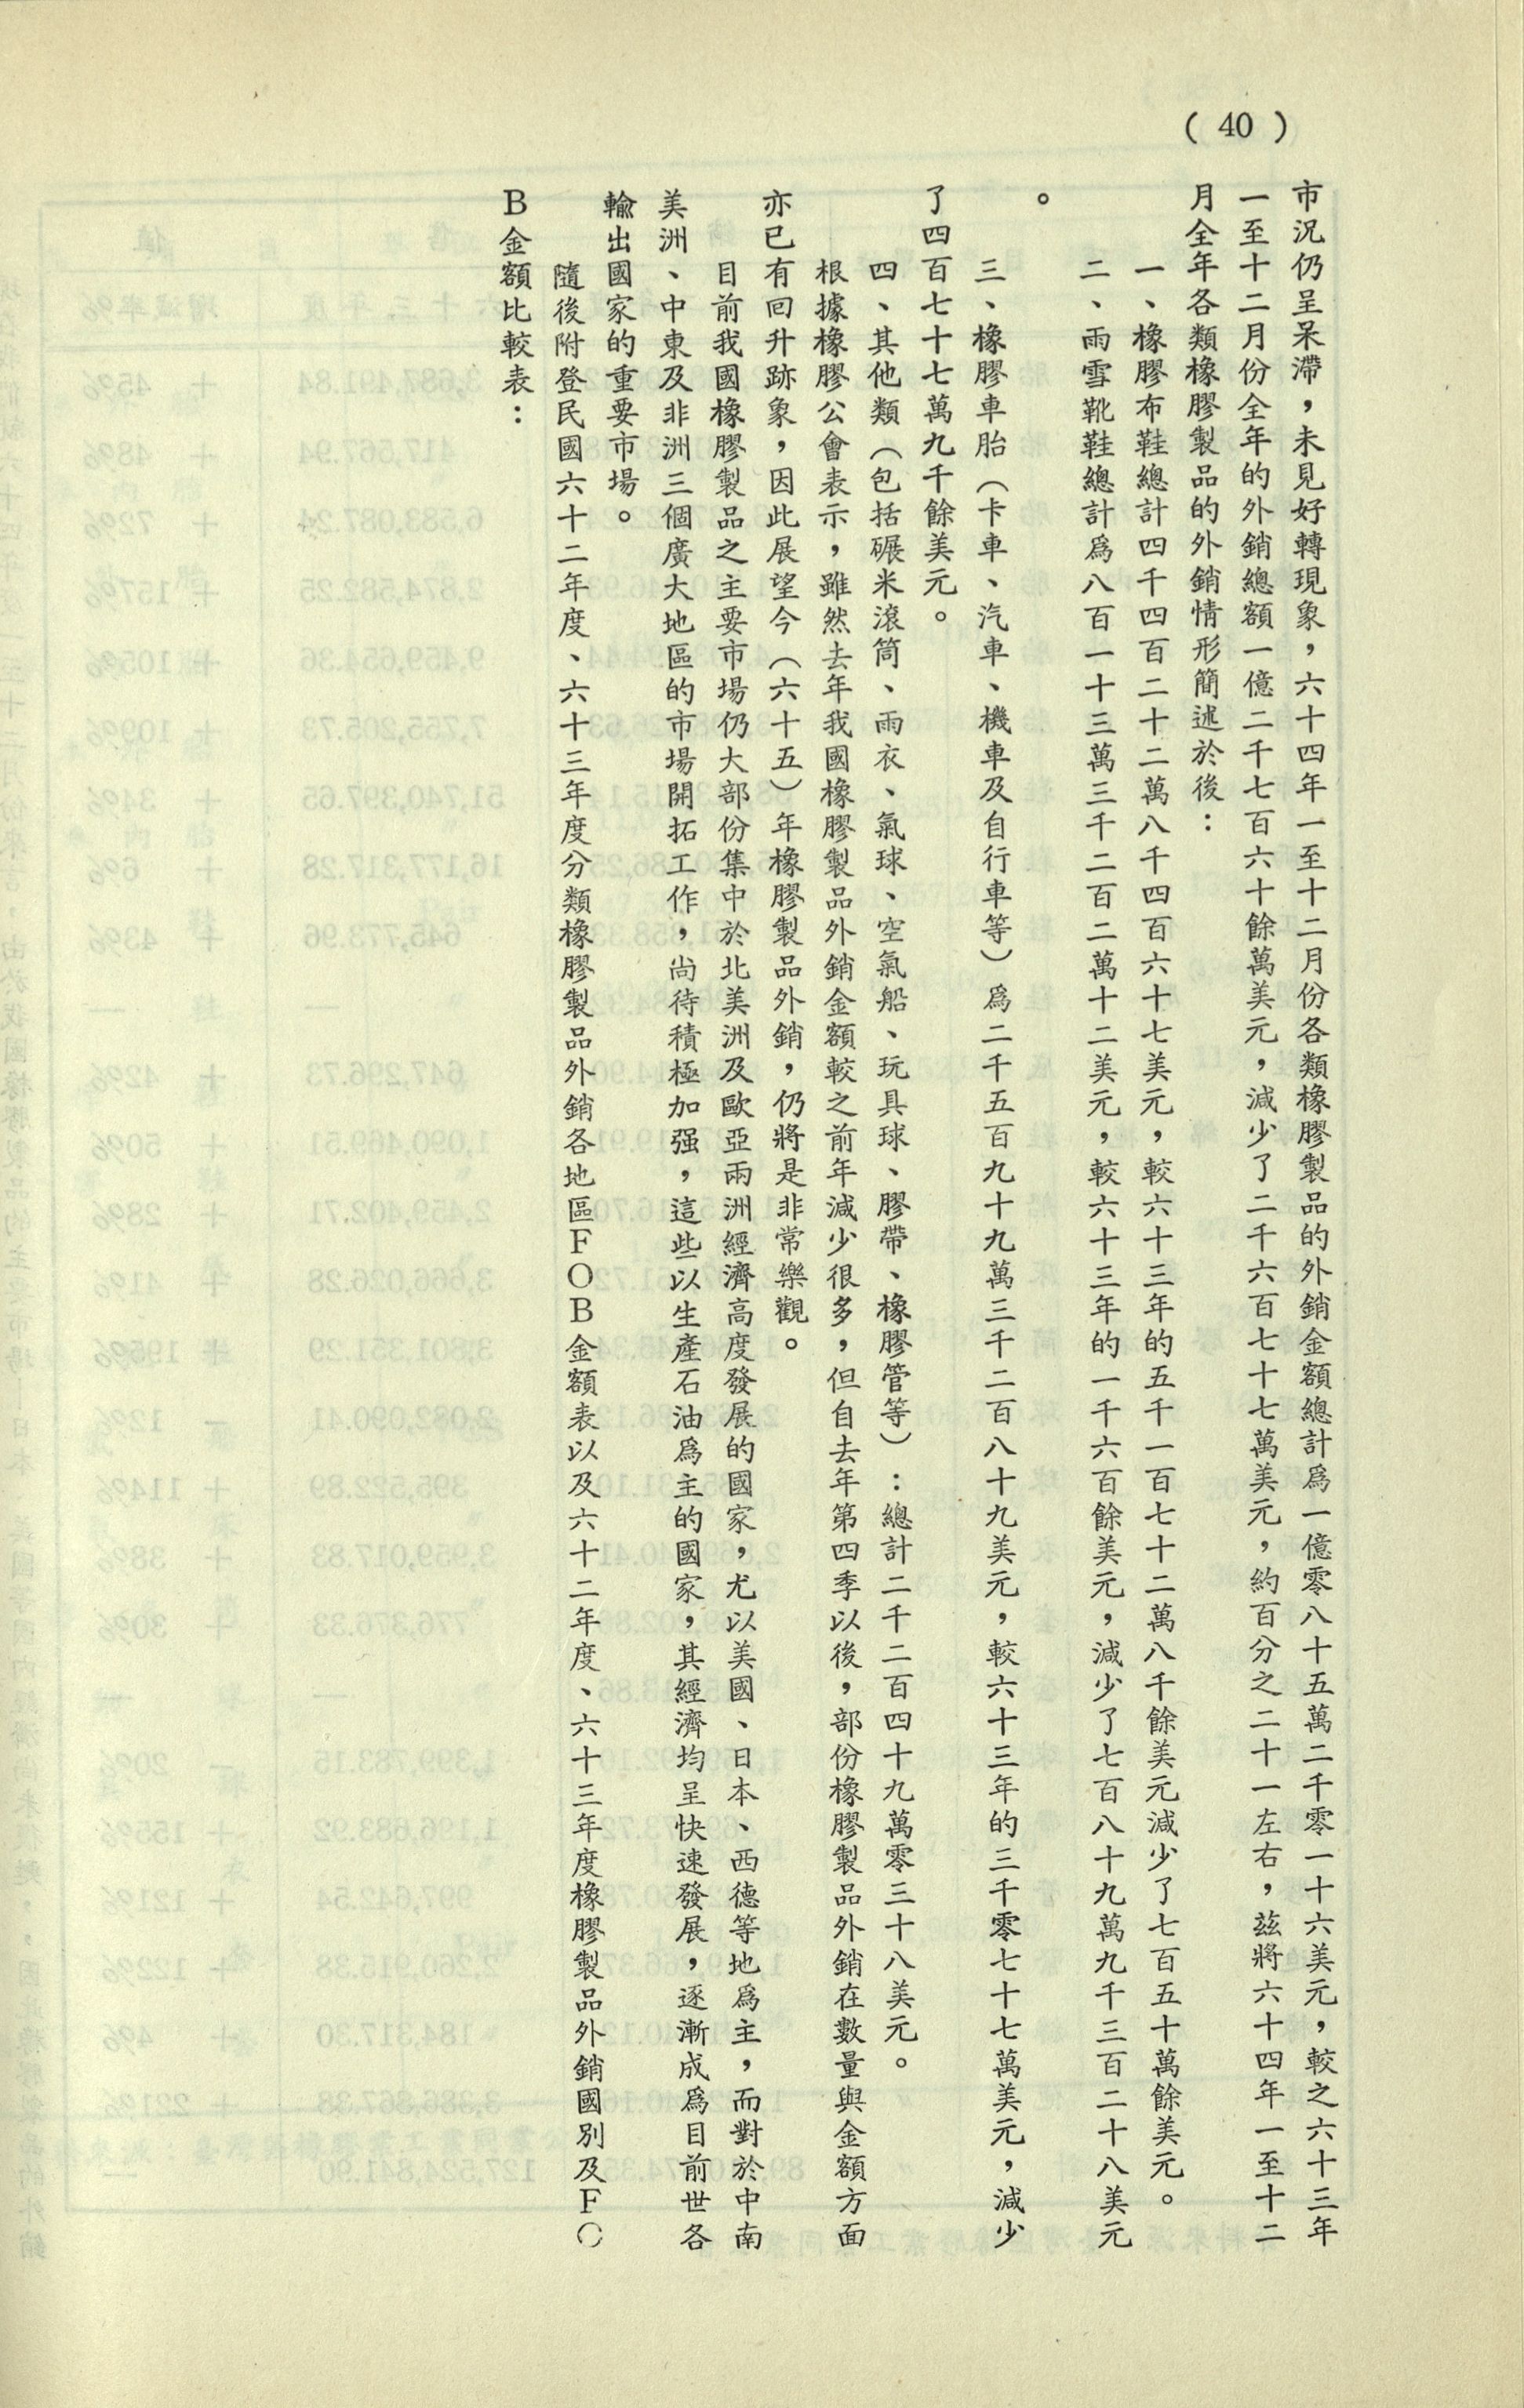 ( 40 )
市況仍呈呆滯，未見好轉現象，六十四年一至十二月份各類橡膠製品的外銷金額總計爲一億零八十五萬二千零一十六美元，較之六十三年
一至十二月份全年的外銷總額一億二千七百六十餘萬美元，減少了二千六百七十七萬美元，約百分之二十一左右，茲將六十四年一至十二
月全年各類橡膠製品的外銷情形簡述於後：
一、橡膠布鞋總計四千四百二十二萬八千四百六十七美元，較六十三年的五千一百七十二萬八千餘美元減少了七百五十萬餘美元。
二、雨雪靴鞋總計爲八百一十三萬三千二百二萬十二美元，較六十三年的一千六百餘美元，減少了七百八十九萬九千三百二十八美元
。
三、橡膠車胎（卡車、汽車、機車及自行車等）爲二千五百九十九萬三千二百八十九美元，較六十三年的三千零七十七萬美元，減少
了四百七十七萬九千餘美元。
四、其他類（包括碾米滾筒、雨衣、氣球、空氣船、玩具球、膠帶、橡膠管等）：總計二千二百四十九萬零三十八美元。
根據橡膠公會表示，雖然去年我國橡膠製品外銷金額較之前年減少很多，但自去年第四季以後，部份橡膠製品外銷在數量與金額方面
亦已有回升跡象，因此展望今（六十五）年橡膠製品外銷，仍將是非常樂觀。
目前我國橡膠製品之主要市場仍大部份集中於北美洲及歐亞兩洲經濟高度發展的國家，尤以美國、日本、西德等地爲主，而對於中南
美洲、中東及非洲三個廣大地區的市場開拓工作，尚待積極加强，這些以生產石油爲主的國家，其經濟均呈快速發展，逐漸成爲目前世各
輸出國家的重要市場。
隨後附登民國六十二年度、六十三年度分類橡膠製品外銷各地區FOB金額表以及六十二年度、六十三年度橡膠製品外銷國別及FO
B金額比較表：